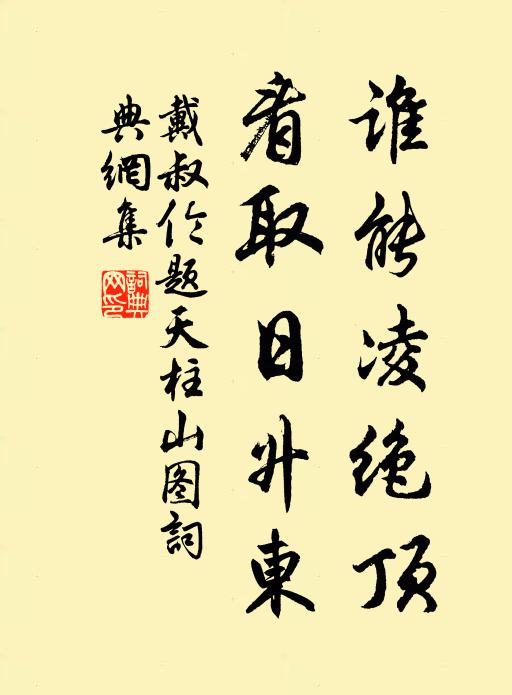 谁能凌绝顶
看取日升東
戴叔伦题天柱山图詞
典網集
詞典网印